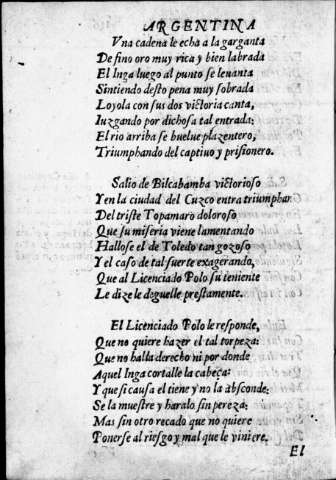 ARGENTINA
Vna cadena le echa a la garganta
De fino oro muy rica y bien labrada
El Inga luego al punto se leuanta
Sintiendo desto pena muy sobrada
Loyola con sus dos victoria canta,
Iuzgando por dichosa tal entrada:
El rio arriba se buelue plazentero,
Triumphando del captiuo y prisionero.
Salio de Bilcabamba victorioso
Y en la ciudad del Cuzco entra triumphar
Del triste Topamaro doloroso
Que su miseria viene lamentando
Hallose el de Toledo tan gozoso
Y el caso de tal suerte exagerando,
Que al Licenciado Polo su teniente
Le dize le deguelle prestamente.
El Licenciado Polo le responde,
Que no quiere hazer el tal torpeza:
Que no halla derecho ni por donde
Aquel Inga cortalle la cabeça:
Y que si causa el tiene y no la absconde:
Se la muestre y haralo sin pereza:
Mas sin otro recado que no quiere
Ponerse al riesgo y mal que le viniere.
El